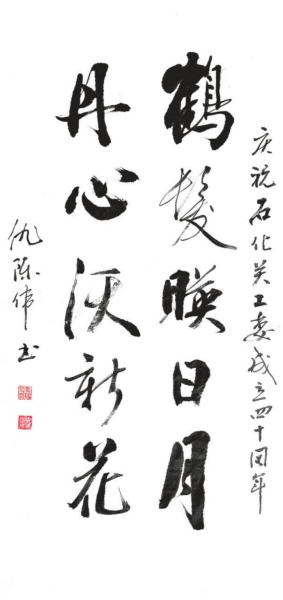 庆祝石化关工委成立四十周年
鶴髮暎日月
丹心沃新花
仇陈伟书